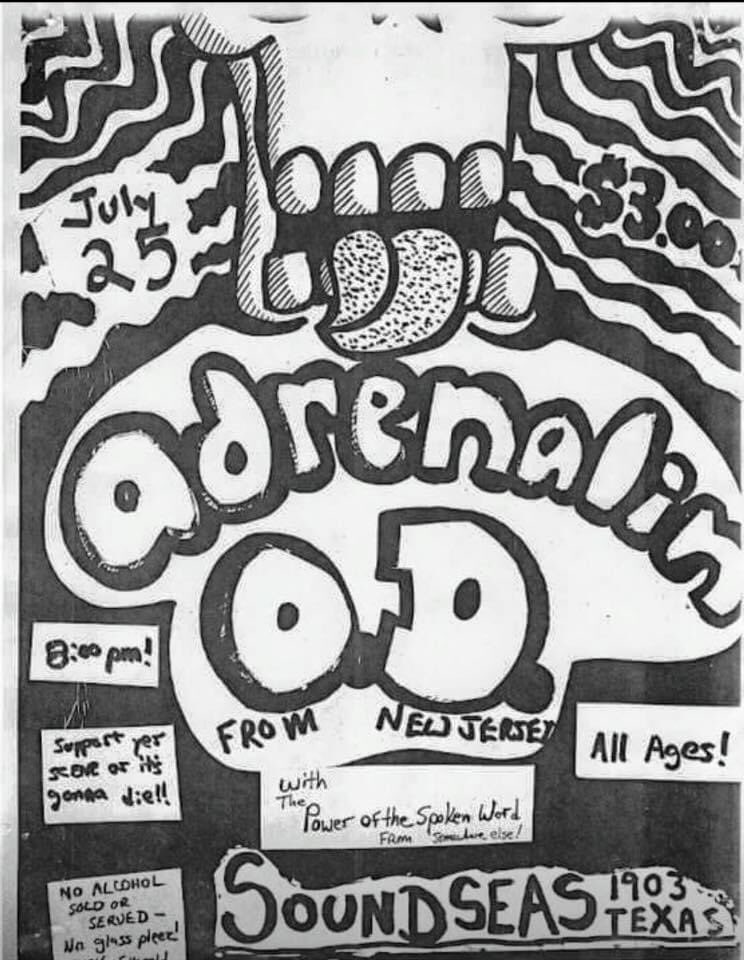 July
25
$3.00
adrenalin
O.D.
FROM NEW JERSEY
8:00 pm!
Support yer
scene or it's
gonna die!!
All Ages!
with
The
Power of the Spoken Word
From Somewhere else!
NO ALCOHOL
SOLD OR
SERVED –
No glass pleez!
SOUNDSEAS
1903
TEXAS